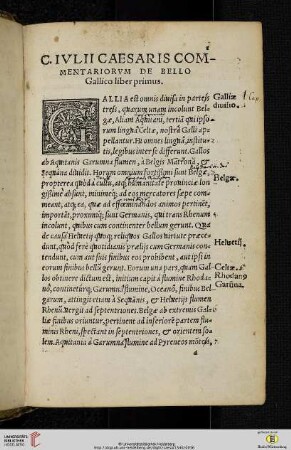 C. IVLII CAESARIS COM-
MENTARIORVM DE BELLO
Gallico liber primus.
GALLIA est omnis diuisa in partes
tres, quarum unam incolunt Bel-
gæ, Aliam Aquitani, tertiā qui ipso-
rum linguā Celtæ, nostrā Galli ap-
pellantur. Hi omnes linguā, institu-
tis, legibus inter se differunt. Gallos
ab Aquitanis Garumna flumen, à Belgis Matrona, &
Sequana diuidit. Horum omnium fortissimi sunt Belgæ,
propterea quòd à cultu, atq; humanitate prouinciæ lon
gissimè absunt, minimeq; ad eos mercatores sæpe com-
meant, atq; ea, quæ ad effœminandos animos pertinēt,
important, proximiq; sunt Germanis, qui trans Rhenum
incolunt, quibus cum continenter bellum gerunt. Qua
de causa Heluetij quoq; reliquos Gallos uirtute præce-
dunt, quòd ferè quotidianis prælijs cum Germanis con
tendunt, cum aut suis finibus eos prohibent, aut ipsi in
eorum finibus bellū gerunt. Eorum una pars, quam Gal
los obtinere dictum est, initium capit à flumine Rhoda
nō, continetúrq; Garumna flumine, Oceanō, finibus Bel
garum, attingit etiam à Sequanis, & Heluetijs flumen
Rhenū. Vergit ad septentriones. Belgæ ab extremis Gal
liæ finibus oriuntur, pertinent ad inferiorē partem flu-
minis Rheni, spectant in septentriones, et orientem so-
lem. Aquitania à Garumna flumine ad Pyreneos mōtes,
a
Galliæ
diuisio.
Belgæ.
Heluetij.
Celtæ.
Rhodano
Garūna.
UNIVERSITÄTS-
BIBLIOTHEK
HEIDELBERG
© Universitätsbibliothek Heidelberg